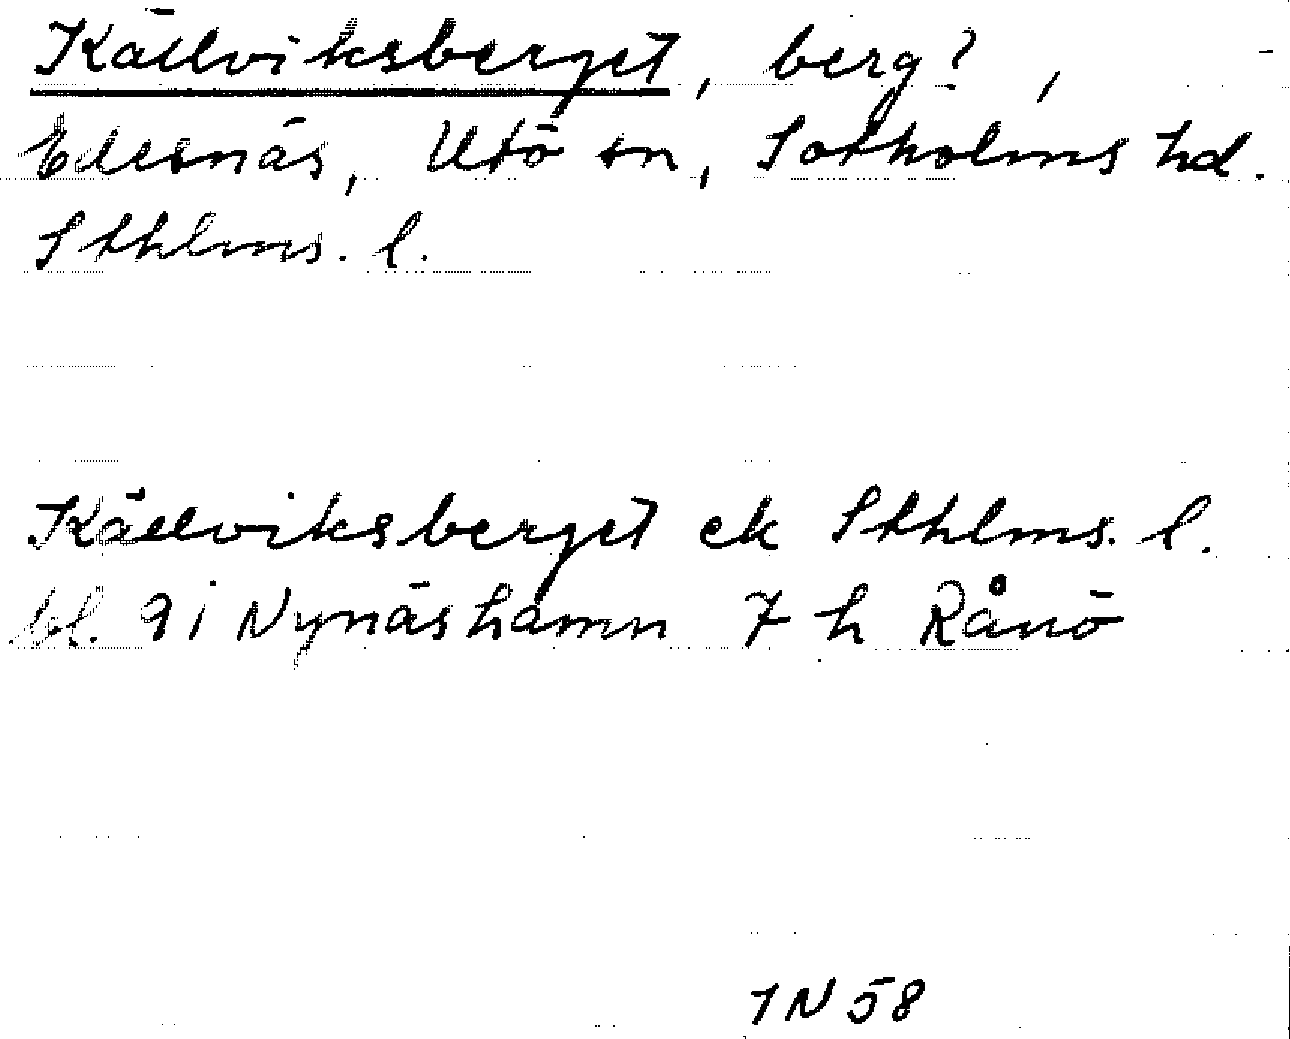 Källviksberget, berg?,
Edesnäs, Utö sn, Sotholms hd.
Sthlms. l.
Källviksberget ek Sthlms. l.
bl. 9 i Nynäshamn 7 h Rånö
IN 58